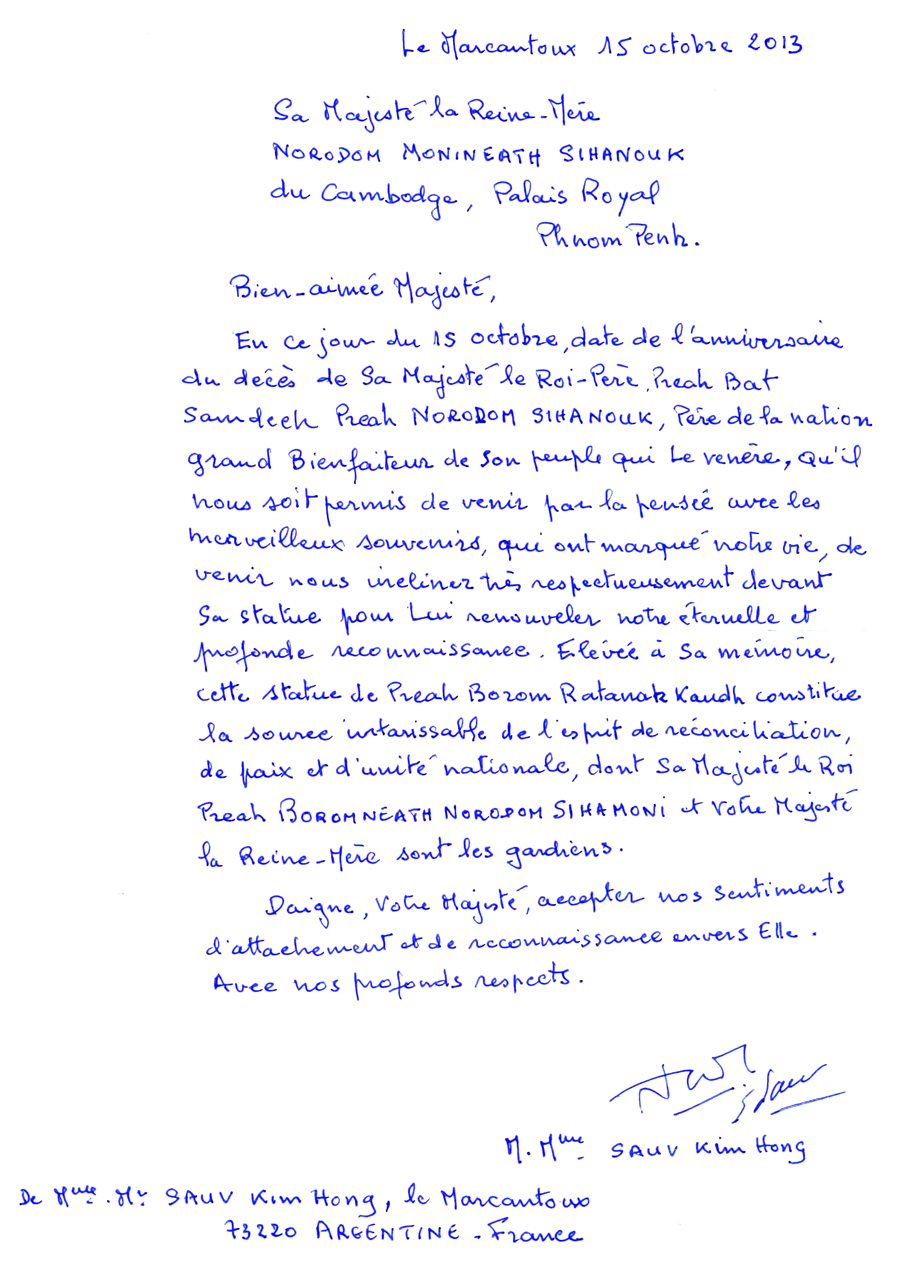 Le Marcantoux 15 octobre 2013
Sa Majesté la Reine-Mère
NORODOM MONINEATH SIHANOUK
du Cambodge, Palais Royal
Phnom Penh.
Bien-aimée Majesté,
En ce jour du 15 octobre, date de l'anniversaire
du décès de Sa Majesté le Roi-Père, Preah Bat
Samdech Preah NORODOM SIHANOUK, Père de la nation
grand Bienfaiteur de Son peuple qui Le venère, qu'il
nous soit permis de venir par la pensée avec les
merveilleux souvenirs, qui ont marqué notre vie, de
venir nous incliner très respectueusement devant
Sa statue pour Lui renouveler notre éternelle et
profonde reconnaissance. Elevée à Sa mémoire,
cette statue de Preah Borom Ratanak Kaudh constitue
la source intarissable de l'esprit de réconciliation,
de paix et d'unité nationale, dont Sa Majesté le Roi
Preah BOROMNEATH NORODOM SIHAMONI et Votre Majesté
la Reine-Mère sont les gardiens.
Daigne, Votre Majesté, accepter nos sentiments
d'attachement et de reconnaissance envers Elle.
Avec nos profonds respects.
M. Mme SAUV Kim Hong
De Mme. Mr SAUV Kim Hong, le Marcantoux
73220 ARGENTINE - France